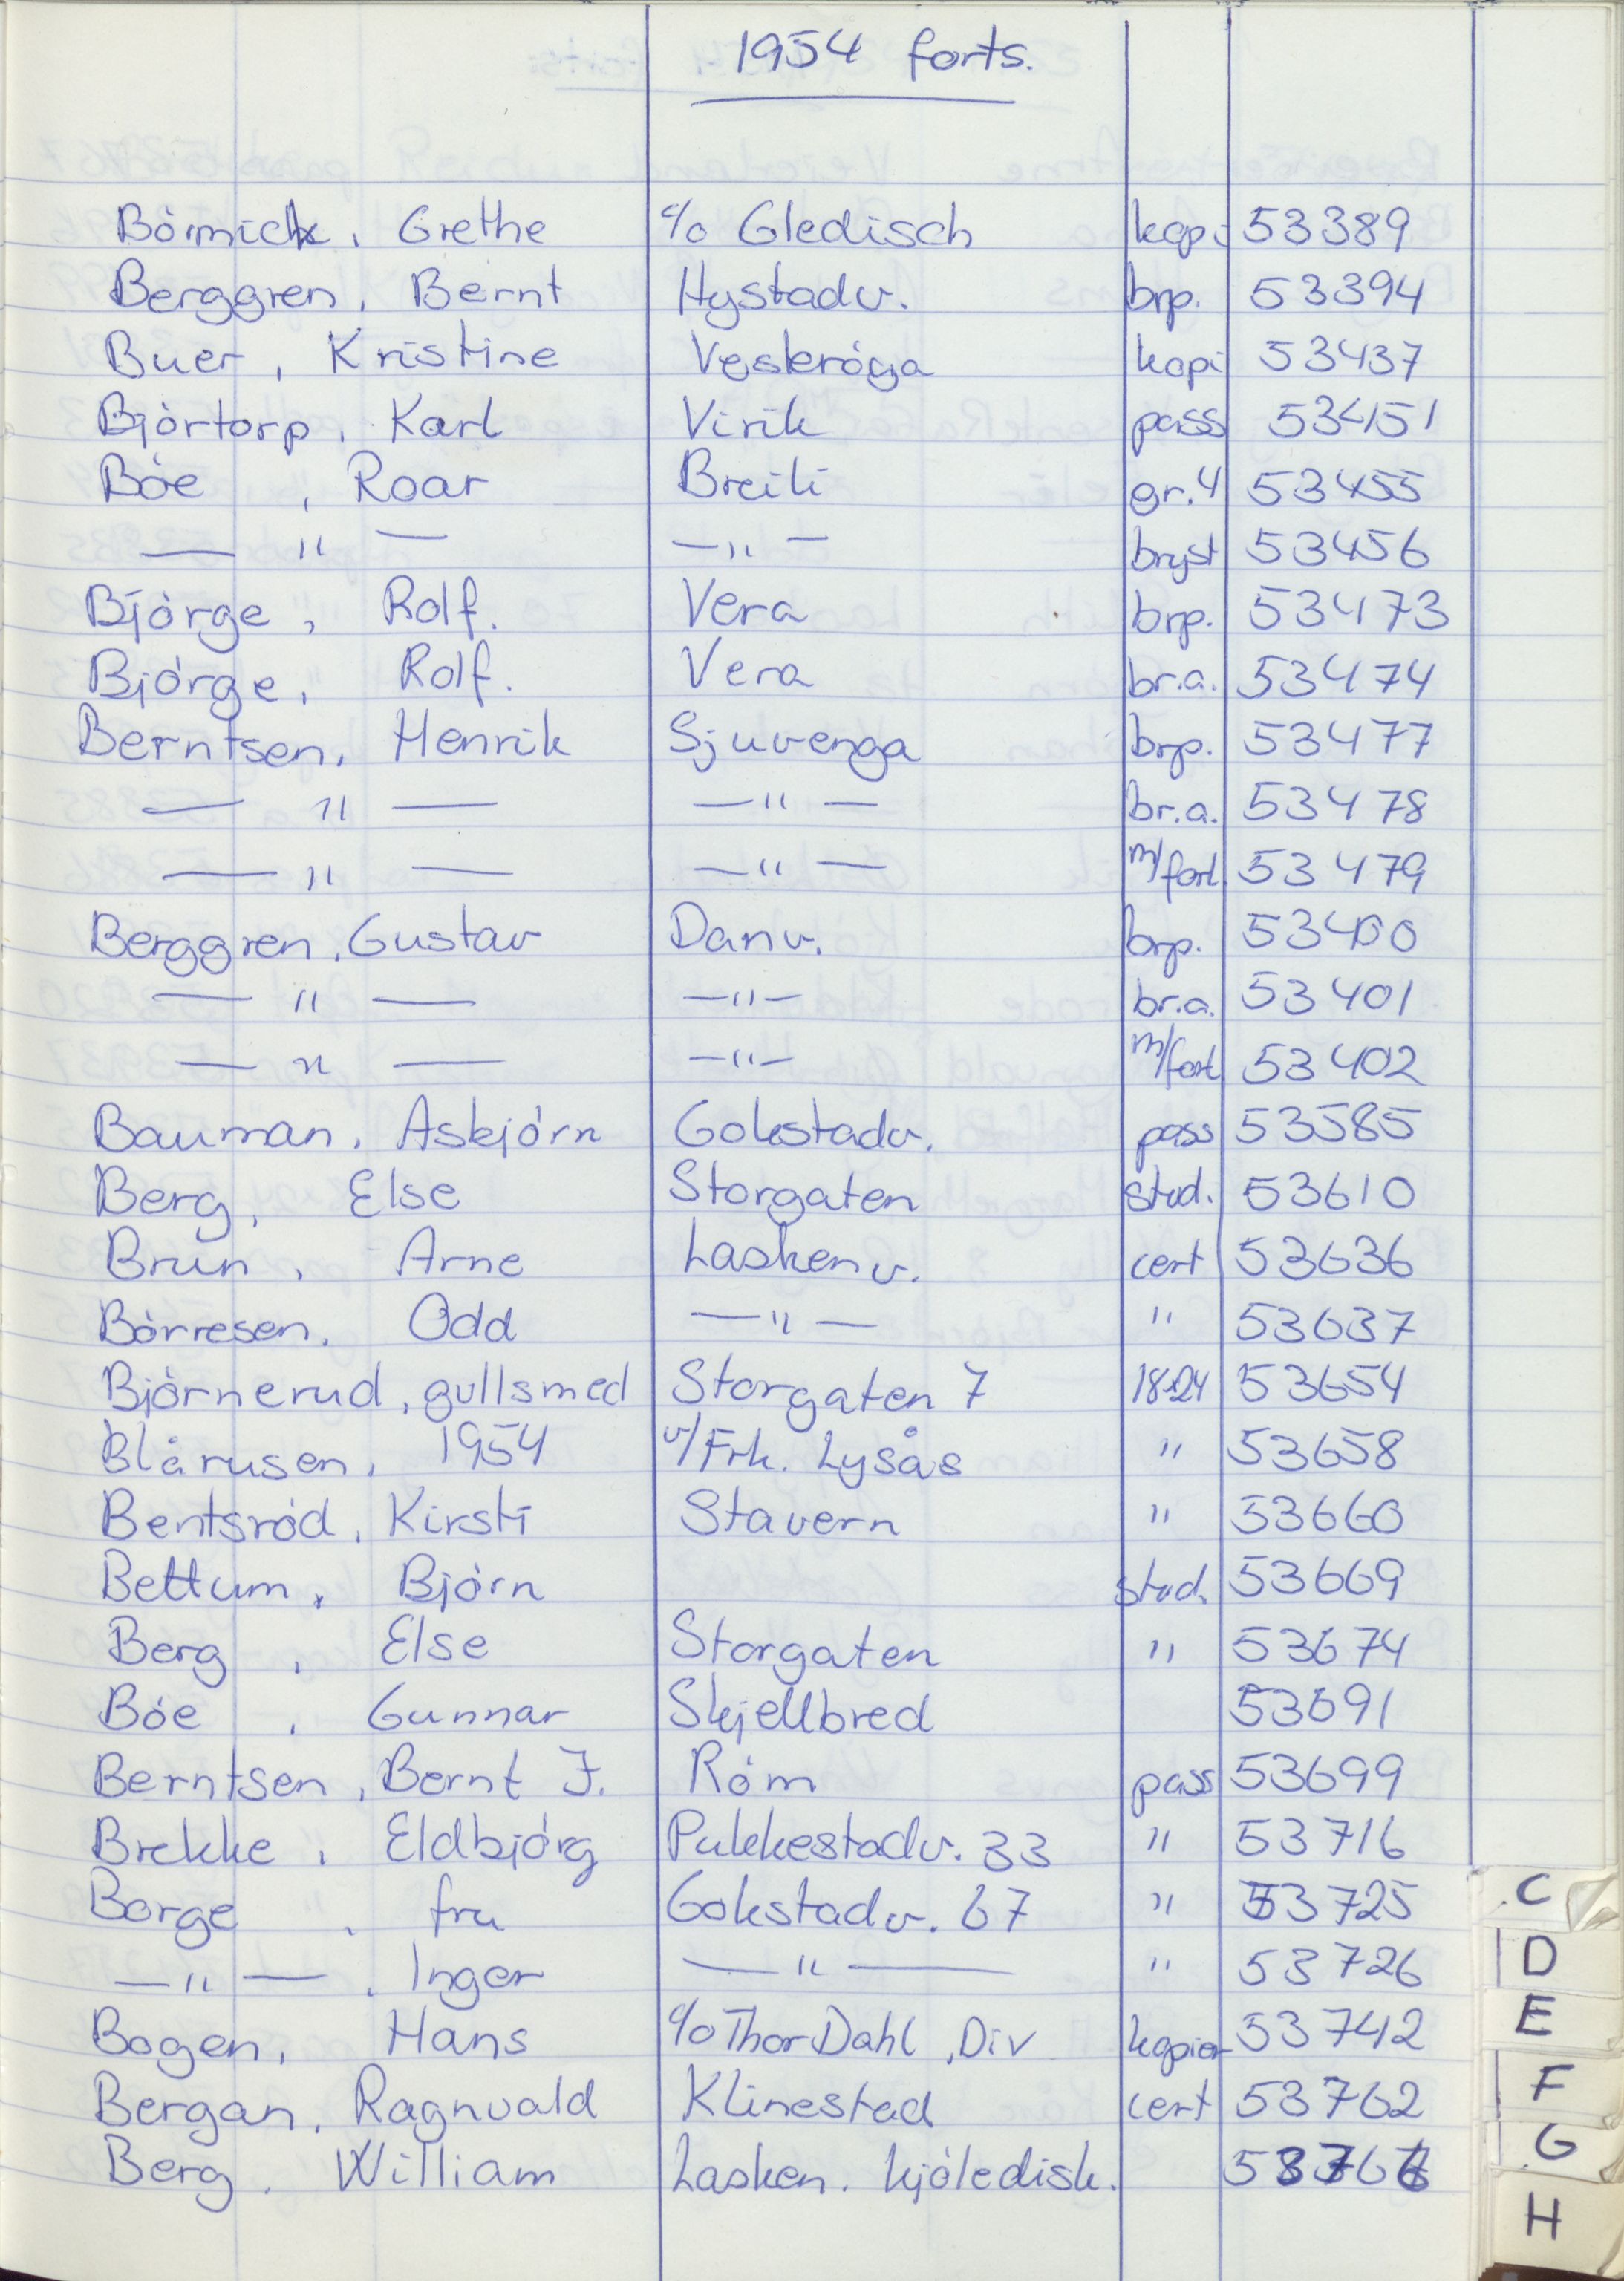 1954 forts.
Börmick, Grethe c/o Gledisch kopi 53389
Berggren, Bernt Hystadv. brp. 53394
Buer, Kristine Vesterøya kopi 53437
Bjørtorp, Karl Virik pass 53451
Bøe, Roar Breili gr.4 53455
— " — — " — bryst 53456
Bjørge, Rolf. Vera brp. 53473
Bjørge, Rolf. Vera br.a. 53474
Berntsen, Henrik Sjuvenga brp. 53477
— " — — " — br.a. 53478
— " — — " — m/fort. 53479
Berggren, Gustav Danv. brp. 53400
— " — — " — br.a. 53401
— " — — " — m/fort 53402
Bauman, Asbjørn Gokstadv. pass 53585
Berg, Else Storgaten stud. 53610
Brun, Arne Laskenv. cert 53636
Børresen, Odd — " — " 53637
Bjørnerud, gullsmed Storgaten 7 18x24 53654
Blårusen, 1954 v/Frk. Lysås " 53658
Bentsrød, Kirsti Stavern " 53660
Bettum, Bjørn stud. 53669
Berg, Else Storgaten " 53674
Bøe, Gunnar Skjellbred 53691
Berntsen, Bernt J. Røm pass 53699
Brekke, Eldbjørg Pukkestadv. 33 " 53716
Borge, fru Gokstadv. 67 " 53725
— " —, Inger — " — " 53726
Bogen, Hans c/o Thor Dahl, Div kopier 53742
Bergan, Ragnvald Klinestad cert 53762
Berg, William Lasken. kjøledisk.
C
D
E
F
G
H